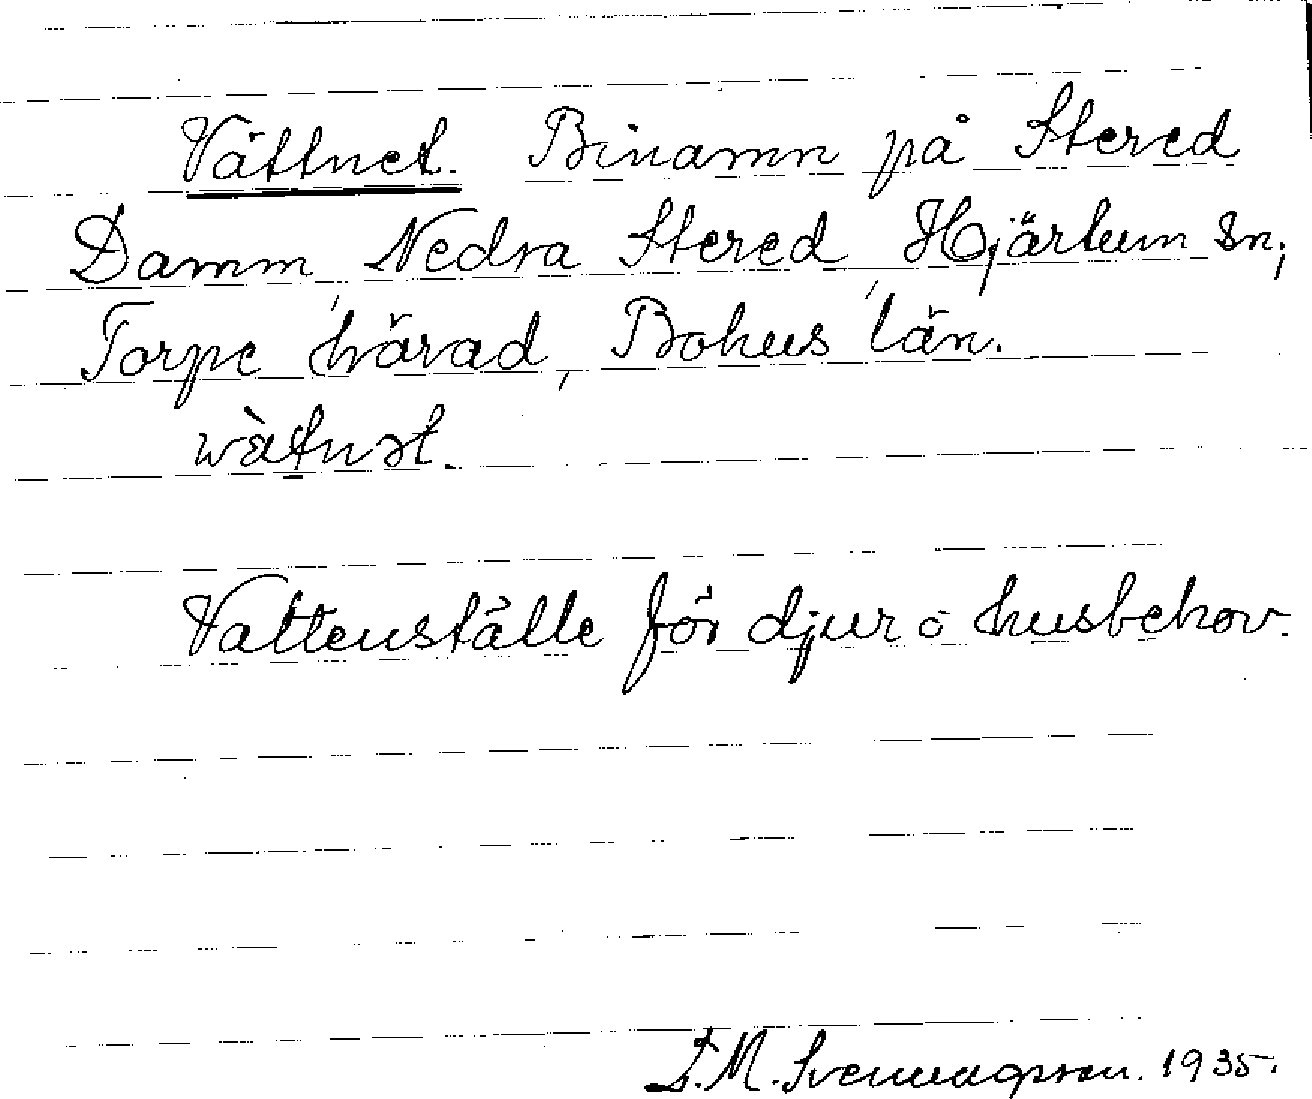 Vättnet. Binamn på Stered
Damm, Nedra Stered, Hjärtum sn;
Torpe härad, Bohus län.
wàtnət.
Vattenställe för djur o husbehov.
1935.